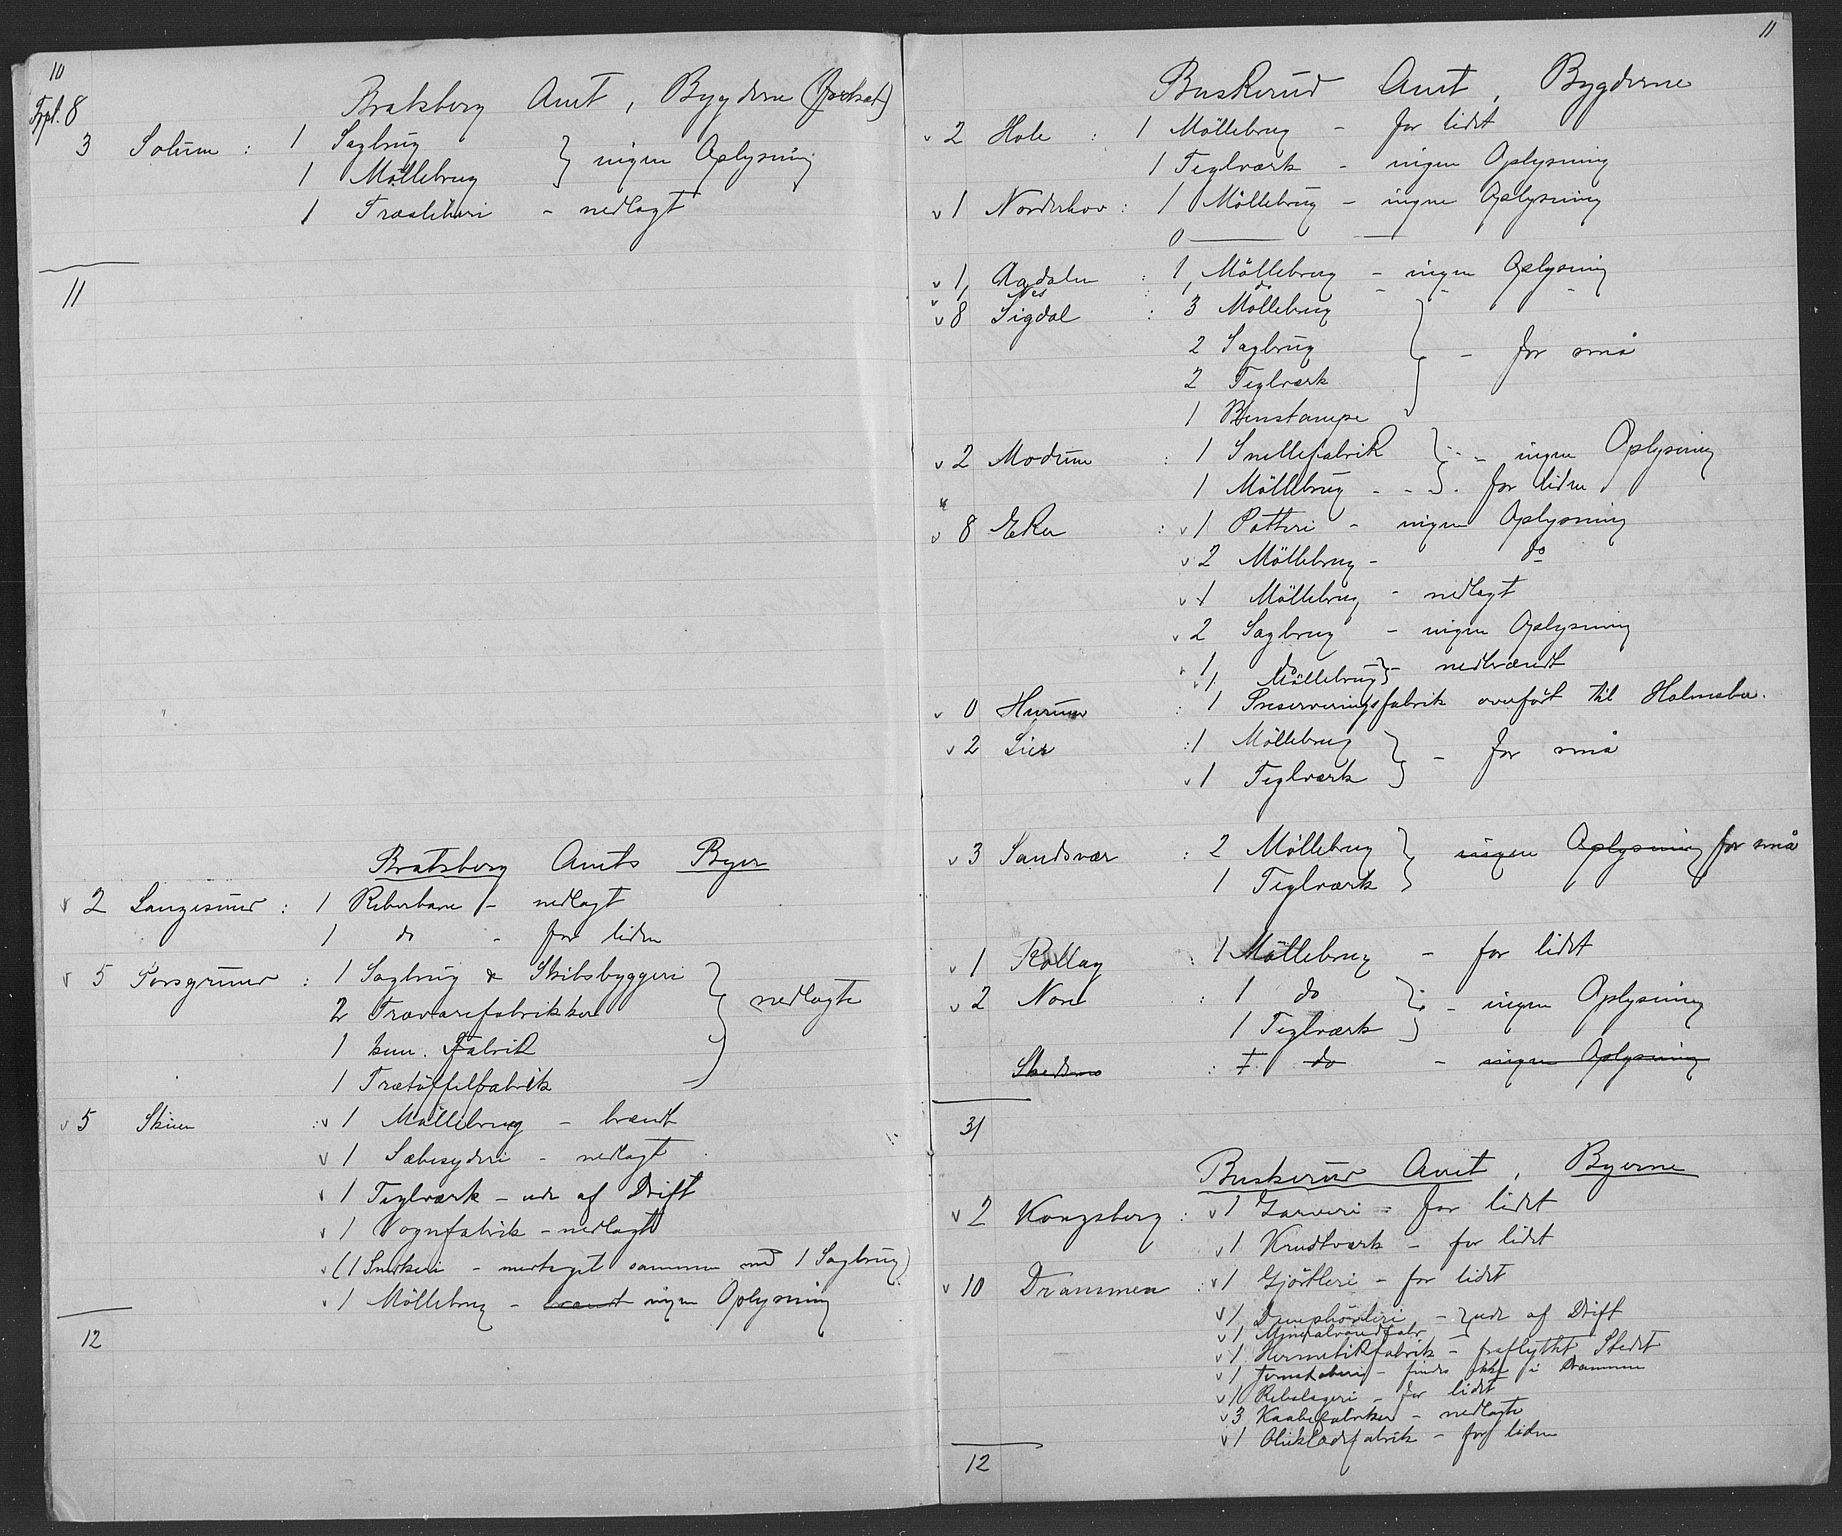 10
Bratsberg Amt, Bygderne (fortsat)
Frpt. 8
3 Solum : 1 Sagbrug
1 Møllebrug } ingen Oplysning
1 Træsliberi - nedlagt
11
Bratsberg Amts Byer
v 2 Langesund : 1 Reberbane - nedlagt
1 do - for liden
v 5 Porsgrund : 1 Sagbrug & Skibsbyggeri
2 Trævarefabrikker } nedlagte
1 kem. Fabrik
1 Trætøffelfabrik
v 5 Skien : v 1 Møllebrug - brændt
v 1 Sæbesyderi - nedlagt
v 1 Teglværk - ude af Drift
v 1 Vognfabrik - nedlagt
v (1 Snekkeri - medtaget sammen med 1 Sagbrug)
v 1 Møllebrug - brændt ingen Oplysning
12
11
Buskerud Amt, Bygderne
v 2 Hole : 1 Møllebrug - for lidet
1 Teglværk - ingen Oplysning
v 1 Norderhov : 1 Møllebrug - ingen Oplysning
0
v 1 Aadalen : 1 Møllebrug - ingen Oplysning
v 1 Nes : 1 do - - -
v 8 Sigdal : 3 Møllebrug
2 Sagbrug } - for små
2 Teglværk
1 Benstampe
v 2 Modum : 1 Snellefabrik } - ingen Oplysning
1 Møllebrug - - for liden
v 8 Eker : v 1 Potteri - ingen Oplysning
v 2 Møllebrug - do
v 1 Møllebrug - nedlagt
v 2 Sagbrug - ingen Oplysning
v 1 do } - nedbrændt
v 1 Møllebrug
v 0 Hurum : 1 Preserveringsfabrik overført til Holmsbu.
v 2 Lier : 1 Møllebrug } - for små
v 1 Teglværk
v 3 Sandsvær : 2 Møllebrug } ingen Oplysning for små
1 Teglværk
v 1 Rollag : 1 Møllebrug - for lidet
v 2 Nore : 1 do } - ingen Oplysning
1 Teglværk
: 1 do - ingen Oplysning
31
Buskerud Amt, Byerne
v 2 Kongsberg : v 1 Garveri - for lidet
v 1 Krudtværk - for lidet
v 10 Drammen : v 1 Gjørtleri - for lidet
v 1 } ude af Drift
v 1 Mineralvandfabr
v 1 Hermetikfabrik - fraflyttet Stedet
v 1 Jernstøberi - findes ikke i Drammen
v 1 Rebslageri - for lidet
v 3 Kaabefabriker - nedlagte
v 1 Olieklædefabrik - for liden
12